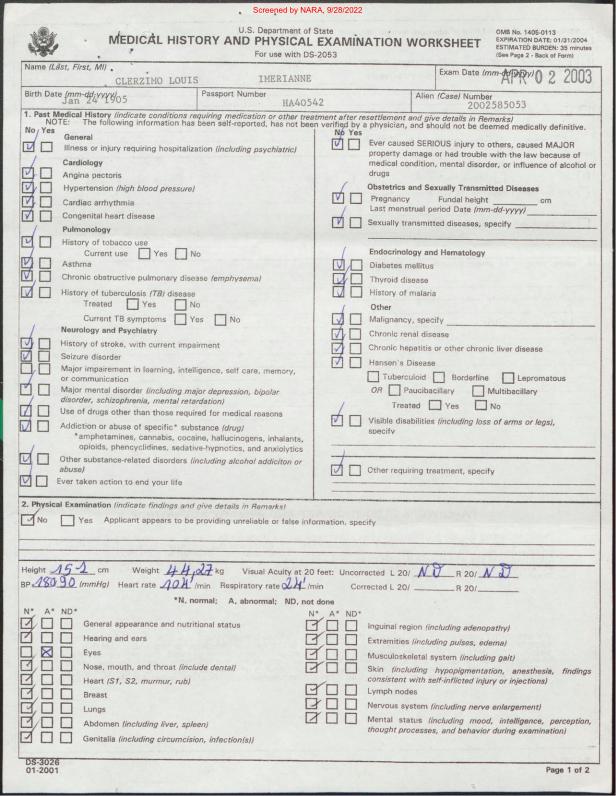 Screened by NARA, 9/28/2022
U.S. Department of State
MEDICAL HISTORY AND PHYSICAL EXAMINATION WORKSHEET
For use with DS-2053
OMB No. 1405-0113
EXPIRATION DATE: 01/31/2004
ESTIMATED BURDEN: 35 minutes
(See Page 2 - Back of Form)
Name (Last, First, MI)
CLERZIMO LOUIS IMERIANNE
Exam Date (mm-dd-yyyy)
APR 02 2003
Birth Date (mm-dd-yyyy)
Jan 24 1905
Passport Number
HA40542
Alien (Case) Number
2002585053
1. Past Medical History (indicate conditions requiring medication or other treatment after resettlement and give details in Remarks)
NOTE: The following information has been self-reported, has not been verified by a physician, and should not be deemed medically definitive.
No Yes
General
Illness or injury requiring hospitalization (including psychiatric)
Cardiology
Angina pectoris
Hypertension (high blood pressure)
Cardiac arrhythmia
Congenital heart disease
Pulmonology
History of tobacco use
Current use Yes No
Asthma
Chronic obstructive pulmonary disease (emphysema)
History of tuberculosis (TB) disease
Treated Yes No
Current TB symptoms Yes No
Neurology and Psychiatry
History of stroke, with current impairment
Seizure disorder
Major impairment in learning, intelligence, self care, memory,
or communication
Major mental disorder (including major depression, bipolar
disorder, schizophrenia, mental retardation)
Use of drugs other than those required for medical reasons
Addiction or abuse of specific* substance (drug)
*amphetamines, cannabis, cocaine, hallucinogens, inhalants,
opioids, phencyclidines, sedative-hypnotics, and anxiolytics
Other substance-related disorders (including alcohol addiciton or
abuse)
Ever taken action to end your life
No Yes
Ever caused SERIOUS injury to others, caused MAJOR
property damage or had trouble with the law because of
medical condition, mental disorder, or influence of alcohol or
drugs
Obstetrics and Sexually Transmitted Diseases
Pregnancy Fundal height cm
Last menstrual period Date (mm-dd-yyyy)
Sexually transmitted diseases, specify
Endocrinology and Hematology
Diabetes mellitus
Thyroid disease
History of malaria
Other
Malignancy, specify
Chronic renal disease
Chronic hepatitis or other chronic liver disease
Hansen's Disease
Tuberculoid Borderline Lepromatous
OR Paucibacillary Multibacillary
Treated Yes No
Visible disabilities (including loss of arms or legs),
specify
Other requiring treatment, specify
2. Physical Examination (indicate findings and give details in Remarks)
No Yes Applicant appears to be providing unreliable or false information, specify
Height cm Weight 44,27 kg Visual Acuity at 20 feet: Uncorrected L 20/ ND R 20/ ND
BP 180 90 (mmHg) Heart rate 104' /min Respiratory rate 24' /min Corrected L 20/ R 20/
*N, normal; A, abnormal; ND, not done
N* A* ND*
General appearance and nutritional status
Hearing and ears
Eyes
Nose, mouth, and throat (include dental)
Heart (S1, S2, murmur, rub)
Breast
Lungs
Abdomen (including liver, spleen)
Genitalia (including circumcision, infection(s))
N* A* ND*
Inguinal region (including adenopathy)
Extremities (including pulses, edema)
Musculoskeletal system (including gait)
Skin (including hypopigmentation, anesthesia, findings
consistent with self-inflicted injury or injections)
Lymph nodes
Nervous system (including nerve enlargement)
Mental status (including mood, intelligence, perception,
thought processes, and behavior during examination)
DS-3026
01-2001
Page 1 of 2